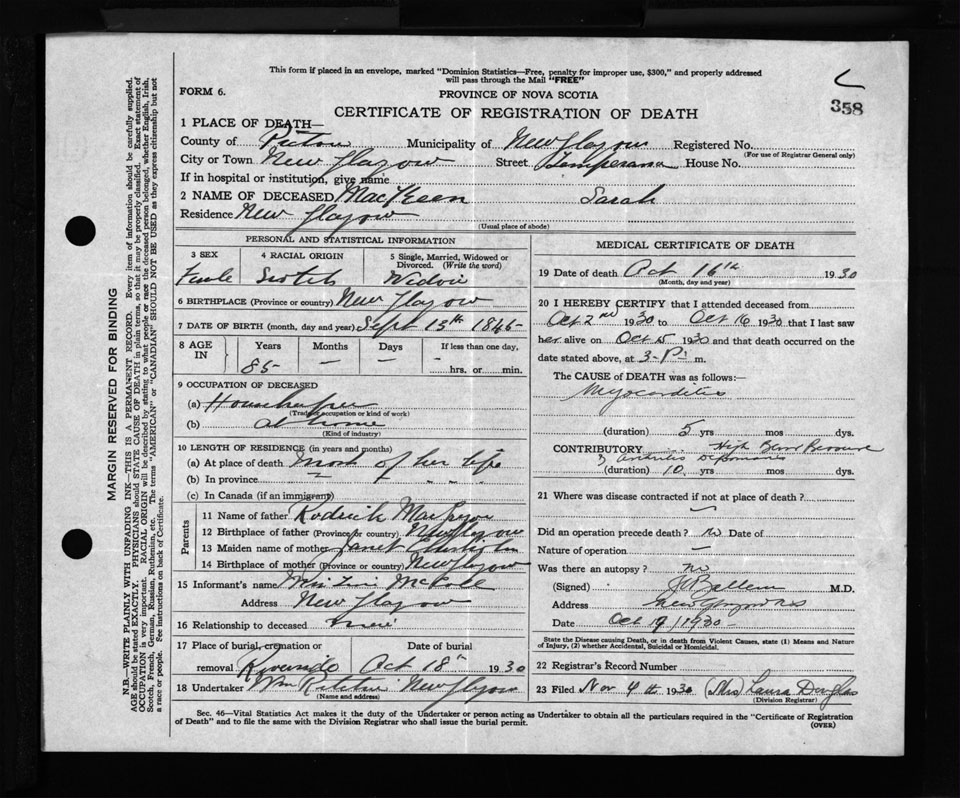 This form if placed in an envelope, marked "Dominion Statistics—Free, penalty for improper use, $300," and properly addressed
will pass through the Mail "FREE"
FORM 6.
PROVINCE OF NOVA SCOTIA
358
CERTIFICATE OF REGISTRATION OF DEATH
1 PLACE OF DEATH—
County of Pictou Municipality of New Glasgow Registered No.
(For use of Registrar General only)
City or Town New Glasgow Street Temperance House No.
If in hospital or institution, give name
2 NAME OF DECEASED MacKeen Sarah
Residence New Glasgow
(Usual place of abode)
PERSONAL AND STATISTICAL INFORMATION
3 SEX 4 RACIAL ORIGIN 5 Single, Married, Widowed or Divorced. (Write the word)
Female Scotch Widow
6 BIRTHPLACE (Province or country) New Glasgow
7 DATE OF BIRTH (month, day and year) Sept 13th 1845
8 AGE IN Years Months Days If less than one day,
85 — — hrs. or min.
9 OCCUPATION OF DECEASED
(a) Housekeeper
(Trade, occupation or kind of work)
(b) at home
(Kind of industry)
10 LENGTH OF RESIDENCE (in years and months)
(a) At place of death most of her life
(b) In province " " " "
(c) In Canada (if an immigrant)
Parents
11 Name of father Roderick MacGregor
12 Birthplace of father (Province or country) New Glasgow
13 Maiden name of mother Janet
14 Birthplace of mother (Province or country) New Glasgow
15 Informant's name
Address New Glasgow
16 Relationship to deceased niece
17 Place of burial, cremation or removal Date of burial
Riverside Oct 18th 1930
18 Undertaker Wm Ritchie New Glasgow
(Name and address)
MEDICAL CERTIFICATE OF DEATH
19 Date of death Oct 16th 1930
(Month, day and year)
20 I HEREBY CERTIFY that I attended deceased from
Oct 2nd 1930 to Oct 16 1930 that I last saw
her alive on Oct 15 1930 and that death occurred on the
date stated above, at 3 P. m.
The CAUSE OF DEATH was as follows:—
Myocarditis
(duration) 5 yrs mos dys.
CONTRIBUTORY High Blood Pressure
(duration) 10 yrs mos dys.
21 Where was disease contracted if not at place of death?
Did an operation precede death? no Date of
Nature of operation —
Was there an autopsy? no
(Signed) M.D.
Address New Glasgow NS
Date Oct 19/1930
State the Disease causing Death, or in death from Violent Causes, state (1) Means and Nature
of Injury, (2) whether Accidental, Suicidal or Homicidal.
22 Registrar's Record Number
23 Filed Nov 4th 1930 (Mrs) Laura Douglas
(Division Registrar)
Sec. 46—Vital Statistics Act makes it the duty of the Undertaker or person acting as Undertaker to obtain all the particulars required in the "Certificate of Registration
of Death" and to file the same with the Division Registrar who shall issue the burial permit.
(OVER)
MARGIN RESERVED FOR BINDING
N.B.—WRITE PLAINLY WITH UNFADING INK—THIS IS A PERMANENT RECORD. Every item of information should be carefully supplied.
AGE should be stated EXACTLY. PHYSICIANS should STATE CAUSE OF DEATH in plain terms, so that it may be properly classified. Exact statement of
OCCUPATION is very important. RACIAL ORIGIN will be described by stating to what people or race the deceased person belonged, whether English, Irish,
Scotch, French, German, Russian, Ruthenian, etc. The terms "AMERICAN" or "CANADIAN" SHOULD NOT BE USED as they express citizenship but not
a race or people. See instructions on back of Certificate.